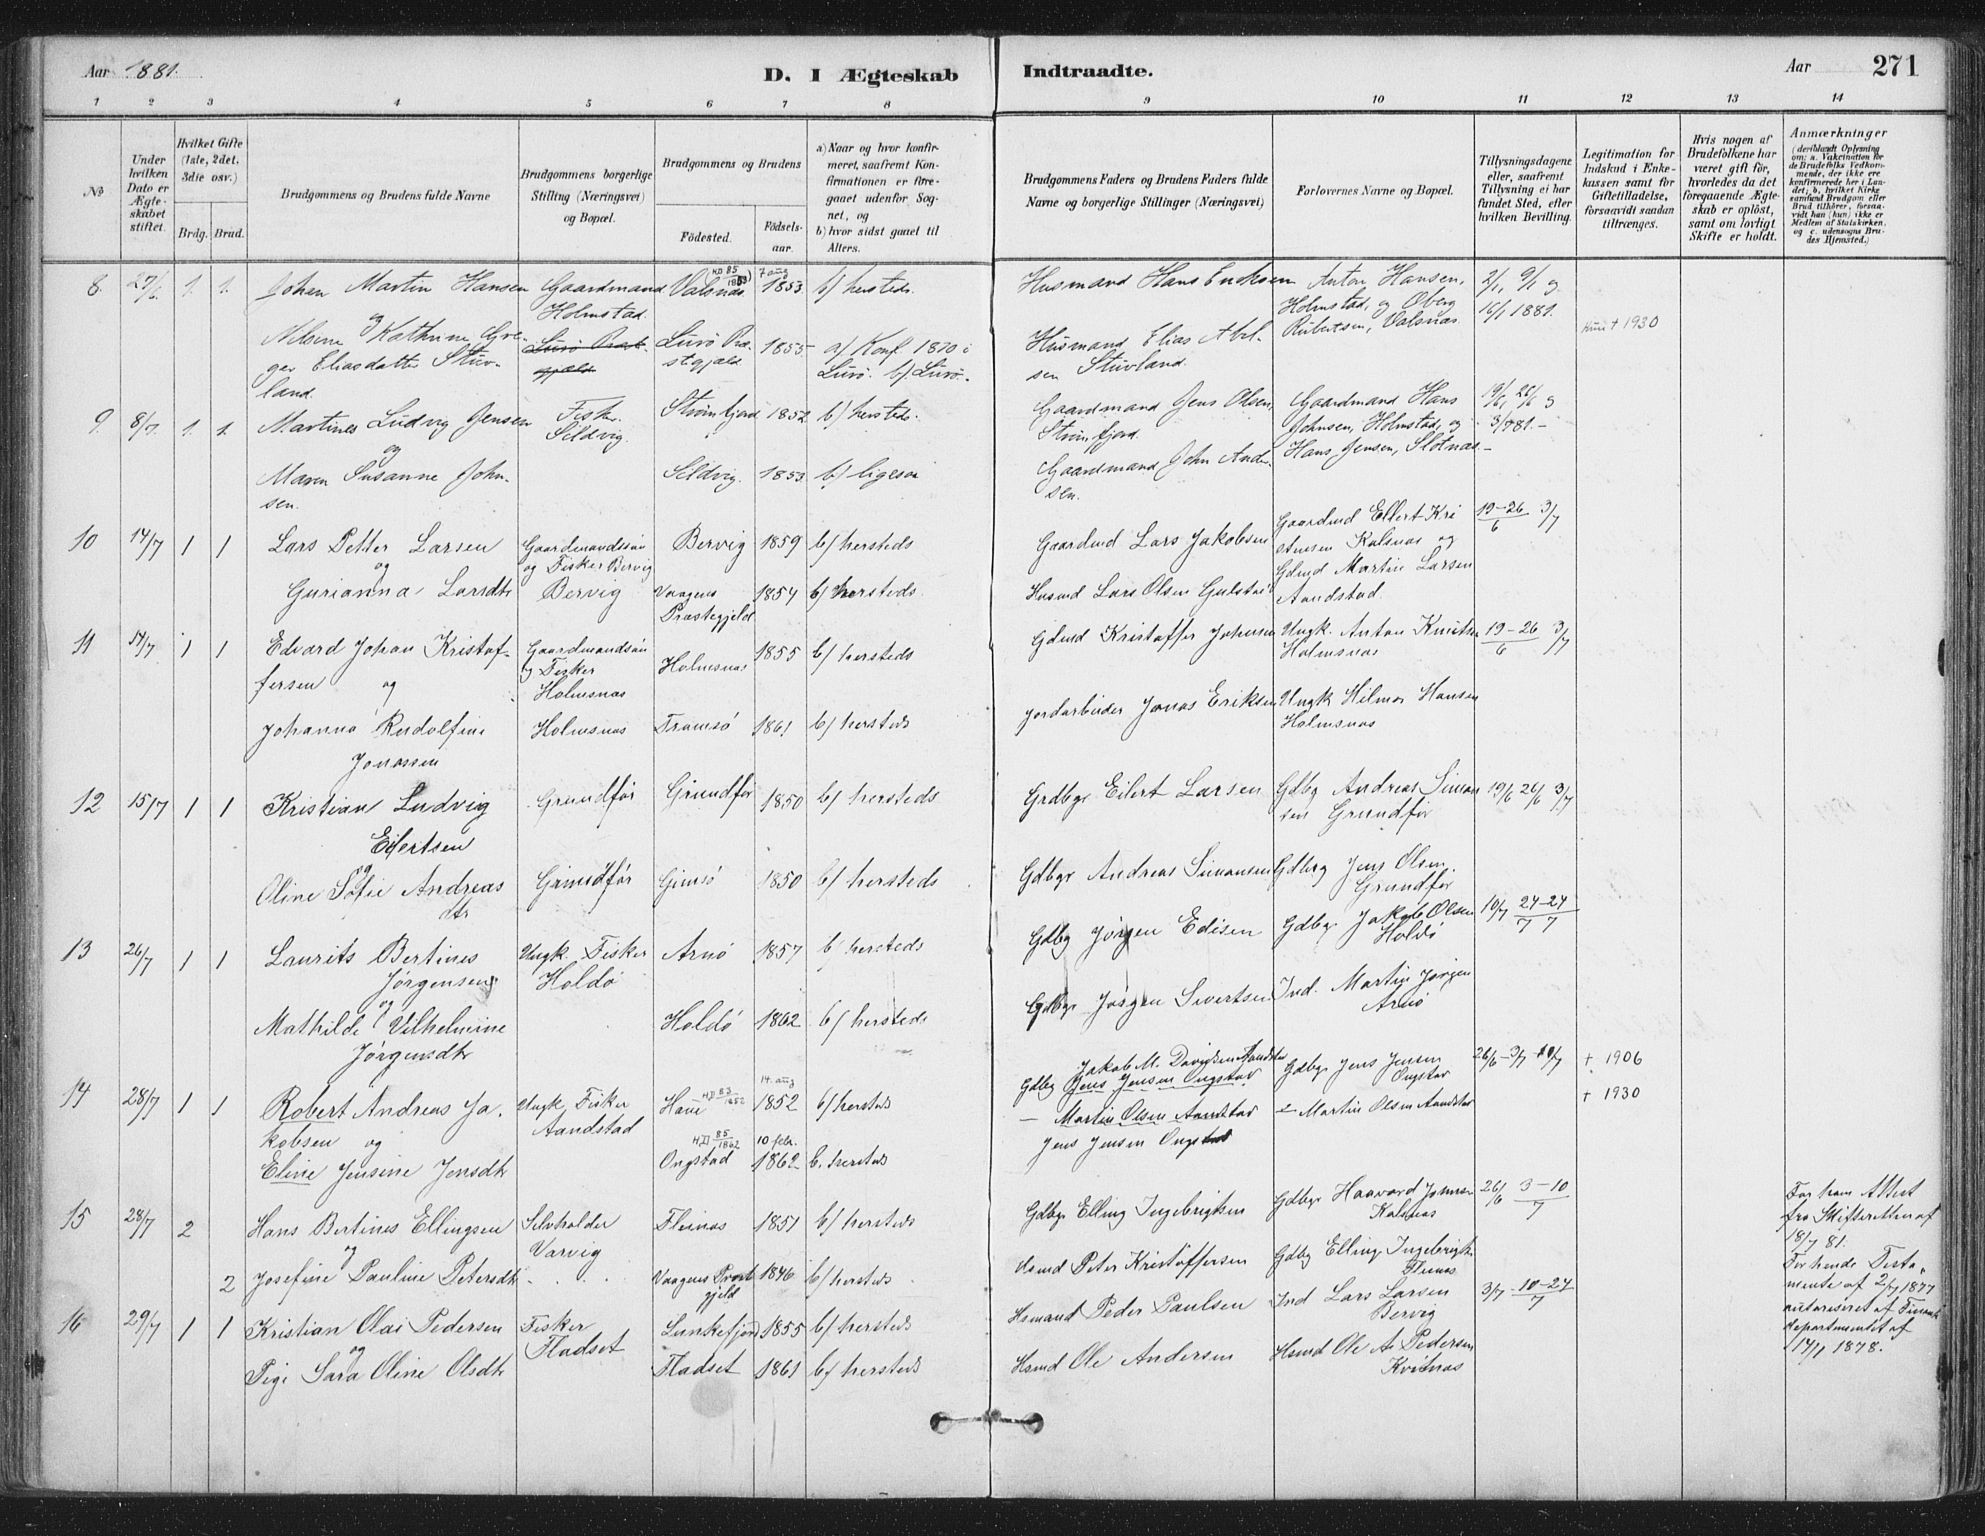 Aar 1881.
D. I Ægteskab
Indtraadte.
Aar
271
1 2 3 4 5 6 7 8
9 10 11 12 13 14
No
Under hvilken Dato er Ægteskabet stiftet.
Hvilket Gifte (1ste, 2det, 3die osv.)
Brdg. Brud.
Brudgommens og Brudens fulde Navne
Brudgommens borgerlige Stilling (Næringsvei) og Bopæl.
Brudgommens og Brudens
Fødested.
Fødselsaar.
a) Naar og hvor konfirmeret, saafremt Konfirmationen er foregaaet udenfor Sognet, og
b) hvor sidst gaaet til Alters.
Brudgommens Faders og Brudens Faders fulde Navne og borgerlige Stillinger (Næringsvei)
Forlovernes Navne og Bopæl.
Tillysningsdagene eller, saafremt Tillysning ei har fundet Sted, efter hvilken Bevilling.
Legitimation for Indskud i Enkekassen samt for Giftetilladelse, forsaavidt saadan tiltrænges.
Hvis nogen af Brudefolkene har været gift før, hvorledes da det foregaaende Ægteskab er opløst, samt om lovligt Skifte er holdt.
Anmærkninger (deriblandt Oplysning om: a. Vakcination for de Brudefolks Vedkommende, der ikke ere konfirmerede her i Landet; b, hvilket Kirkesamfund Brudgom eller Brud tilhører, forsaavidt han (hun) ikke er Medlem af Statskirken, og c. udensogns Brudes Hjemsted.)
8. 27/6. 1. 1. Johan Martin Hansen Gaardmand Holmstad. Valsnæs 7 aug 1853. b/ hersteds. Husmand Hans Eriksen Anton Hansen, Holmstad, og Oberg Rubertsen, Valsnæs 2/1, 9/1 og 16/1 1881.
og
Kathrine Eliasdatter Stuvland. Lurø Præstgjæld Lurø Præstgjæld 1855 a/ Konf 1870 i Lurø. b/ Lurø. Husmand Elias Abelsen Stuvland. † 1930
9. 8/7. 1. 1. Martines Ludvig Jensen Fisk. Seldvig. Strømfjord 1852 b/ hersteds. Gaardmand Jens Olsen, Strømfjord. Gaardmand Hans Johnsen, Holmstad, og Hans Jensen, Slotnæs 19/6, 26/6 og 3/7 81.
og
Maren Susanne Johnsen. Seldvig. 1853. b/ ligesaa Gaardmand John Andersen.
10 14/7 1 1 Lars Petter Larsen Gaardmandssøn og Fisker Bervig Bervig 1859 b/ hersteds Gaardmd Lars Jakobsen Gaardmd Ellert Kristensen Kalsnæs og 19-26/6 3/7
og
Gurianna Larsdtr Bervig Vaagens Præstegjeld 1854 b/ hersteds. Husmd Lars Olsen Gdmd Martin Larsen Aandstad
11 14/7 1 1 Edvard Johan Kristoffersen og Gaardmandssøn og Fisker Holmsnæs Holmsnæs 1855 b/ hersteds Gdmd Kristoffer Johnsen Ungk. Anton Holmsnæs 19-26/6 3/7
Johanna Rudolfine Jonassen Holmsnæs Tromsø 1861 b/ hersteds Jordarbeider Jonas Eriksen Ungk Hilmar Hansen Holmsnæs
12 15/7 1 1 Kristian Ludvig Eilertsen Grundfør Grundfør 1850 b/ hersteds Grdbgr Eilert Larsen Gdbg Andreas Simonsen Grundfør 19/6 26/6 3/7
og
Oline Sofie Andreasdtr Grundfør Gimsø 1850 b/ hersteds Gdbgr Andreas Simonsen Gdbrg Jens Olsen Grundfør
13 26/7 1 1 Laurits Bertines Jørgensen Ungk. Fisker Holdø Arnø 1857 b/ hersteds Gdbg Jørgen Edisen Gdbgr Jakob Olsen Holdø 10/7 24-24/7 7
og
Mathilde Vilhelmine Jørgensdtr Holdø 1862 b/ hersteds Gdbgr Jørgen Sivertsen Ind. Martin Jørgen Arnø
14 28/7 1 1 Robert Andreas Jakobsen og Ungk Fisker Aandstad HD 83/1852 14. aug 1852 b/ hersteds Jakob M. Davidsen Aandstad Gdbg Jens Jensen Ongstad Gdbgr Jens Jensen Ongstad 26/6 - 3/7 10/7 † 1906
Martin Olsen Aandstad Martin Olsen Aandstad † 1930
Eline Jensine Jensdtr HD 85/1862 Ongstad 10 febr. 1862 b. hersteds Jens Jensen Ongstad
15 28/7 2 Hans Bertines Ellingsen Selvholder Varvig Fleinæs 1851 b/ hersteds Gdbgr Elling Ingebrigtsen Gdbgr Haavard Johnsen Kalsnæs 26/6 3-10/7 For ham Attest fra Skifteretten af 18/7 81.
og
2 Josefine Pauline Petersdtr Vaagens Præstgjeld 1846 b/ hersteds Hsmd Peter Kristoffersen Gdbg Elling Ingebrigts. Fleinæs For hende Testamente af 2/7 1877 autoriseret af departmentet af 17/1 1878.
16 29/7 1 1 Kristian Olai Pedersen Fisker Fladset Lunkefjord 1855 b/ hersteds Hsmand Peder Paulsen Ind Lars Larsen Bervig 3/7 - 10-24/7
og
Pige Sara Oline Olsdtr Fladset 1861 b/ hersteds Hsmd Ole Andersen Hsmd Ole A. Pedersen Kvitnæs